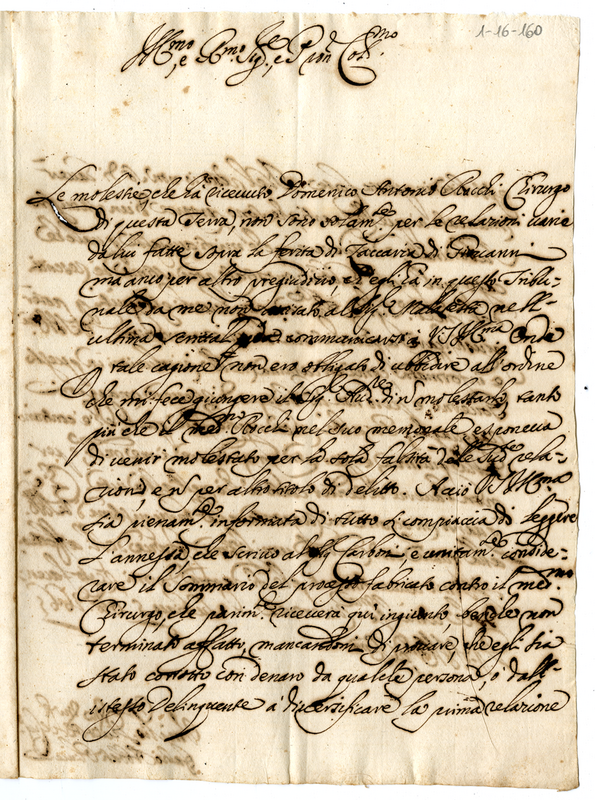 1-16-160
Ill.mo, e R.mo Sig.re, e P.ron Col.mo
Le molestie, che hà ricevuto Domenico Antonio Rocchi Cirurgo
di questa Terra, non sono solam.te per le relazioni varie
da lui fatte sopra la ferita di Zaccaria di Giovanni
ma anco per altro pregiudizio ch'egli hà in questo Tribu-
nale da me non al Sig. nell'
ultima communicarsi à V.S. Ill.ma Onde
tale cagione non ero obligato di ubbidire all'ordine
che mi fece giungere il Sig. Aud.re di n molestarlo, tanto
più che il med.mo Rocchi nel suo memoriale esponeva
di venir molestato per la sola falsità delle sud.e rela-
zioni, e n per altro titolo di delitto. Acciò V.S. Ill.ma
sia pienam.te informata di tutto si compiaccia di leggere
l'annessa, che scrivo al Sig. Carboni, e unitam.te conside-
rare il Sommario del processo fabricato contro il med.mo
Cirurgo, che parim.te riceverà qui ingiunto, benche non
terminato affatto, mancandomi di provare, che egli sia
stato corrotto con denaro da qualche persona, ò dall'
istesso Delinquente à diversificare la prima relazione